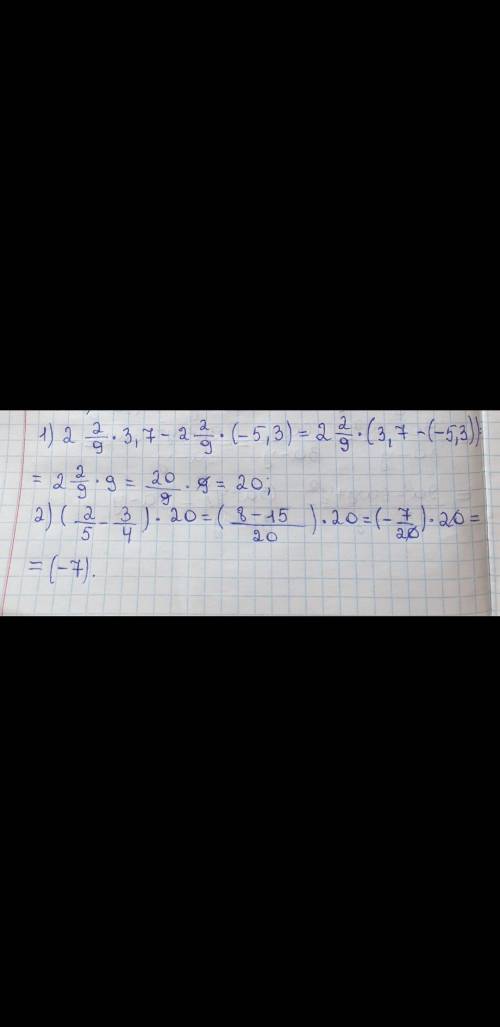 1) 2 2/9 · 3,7 - 2 2/9 · (-5,3) = 2 2/9 · (3,7 - (-5,3)) =
= 2 2/9 · 9 = 20/9 · 9 = 20;
2) ( 2/5 - 3/4 ) · 20 = ( 8-15/20 ) · 20 = (- 7/20 ) · 20 =
= (-7).